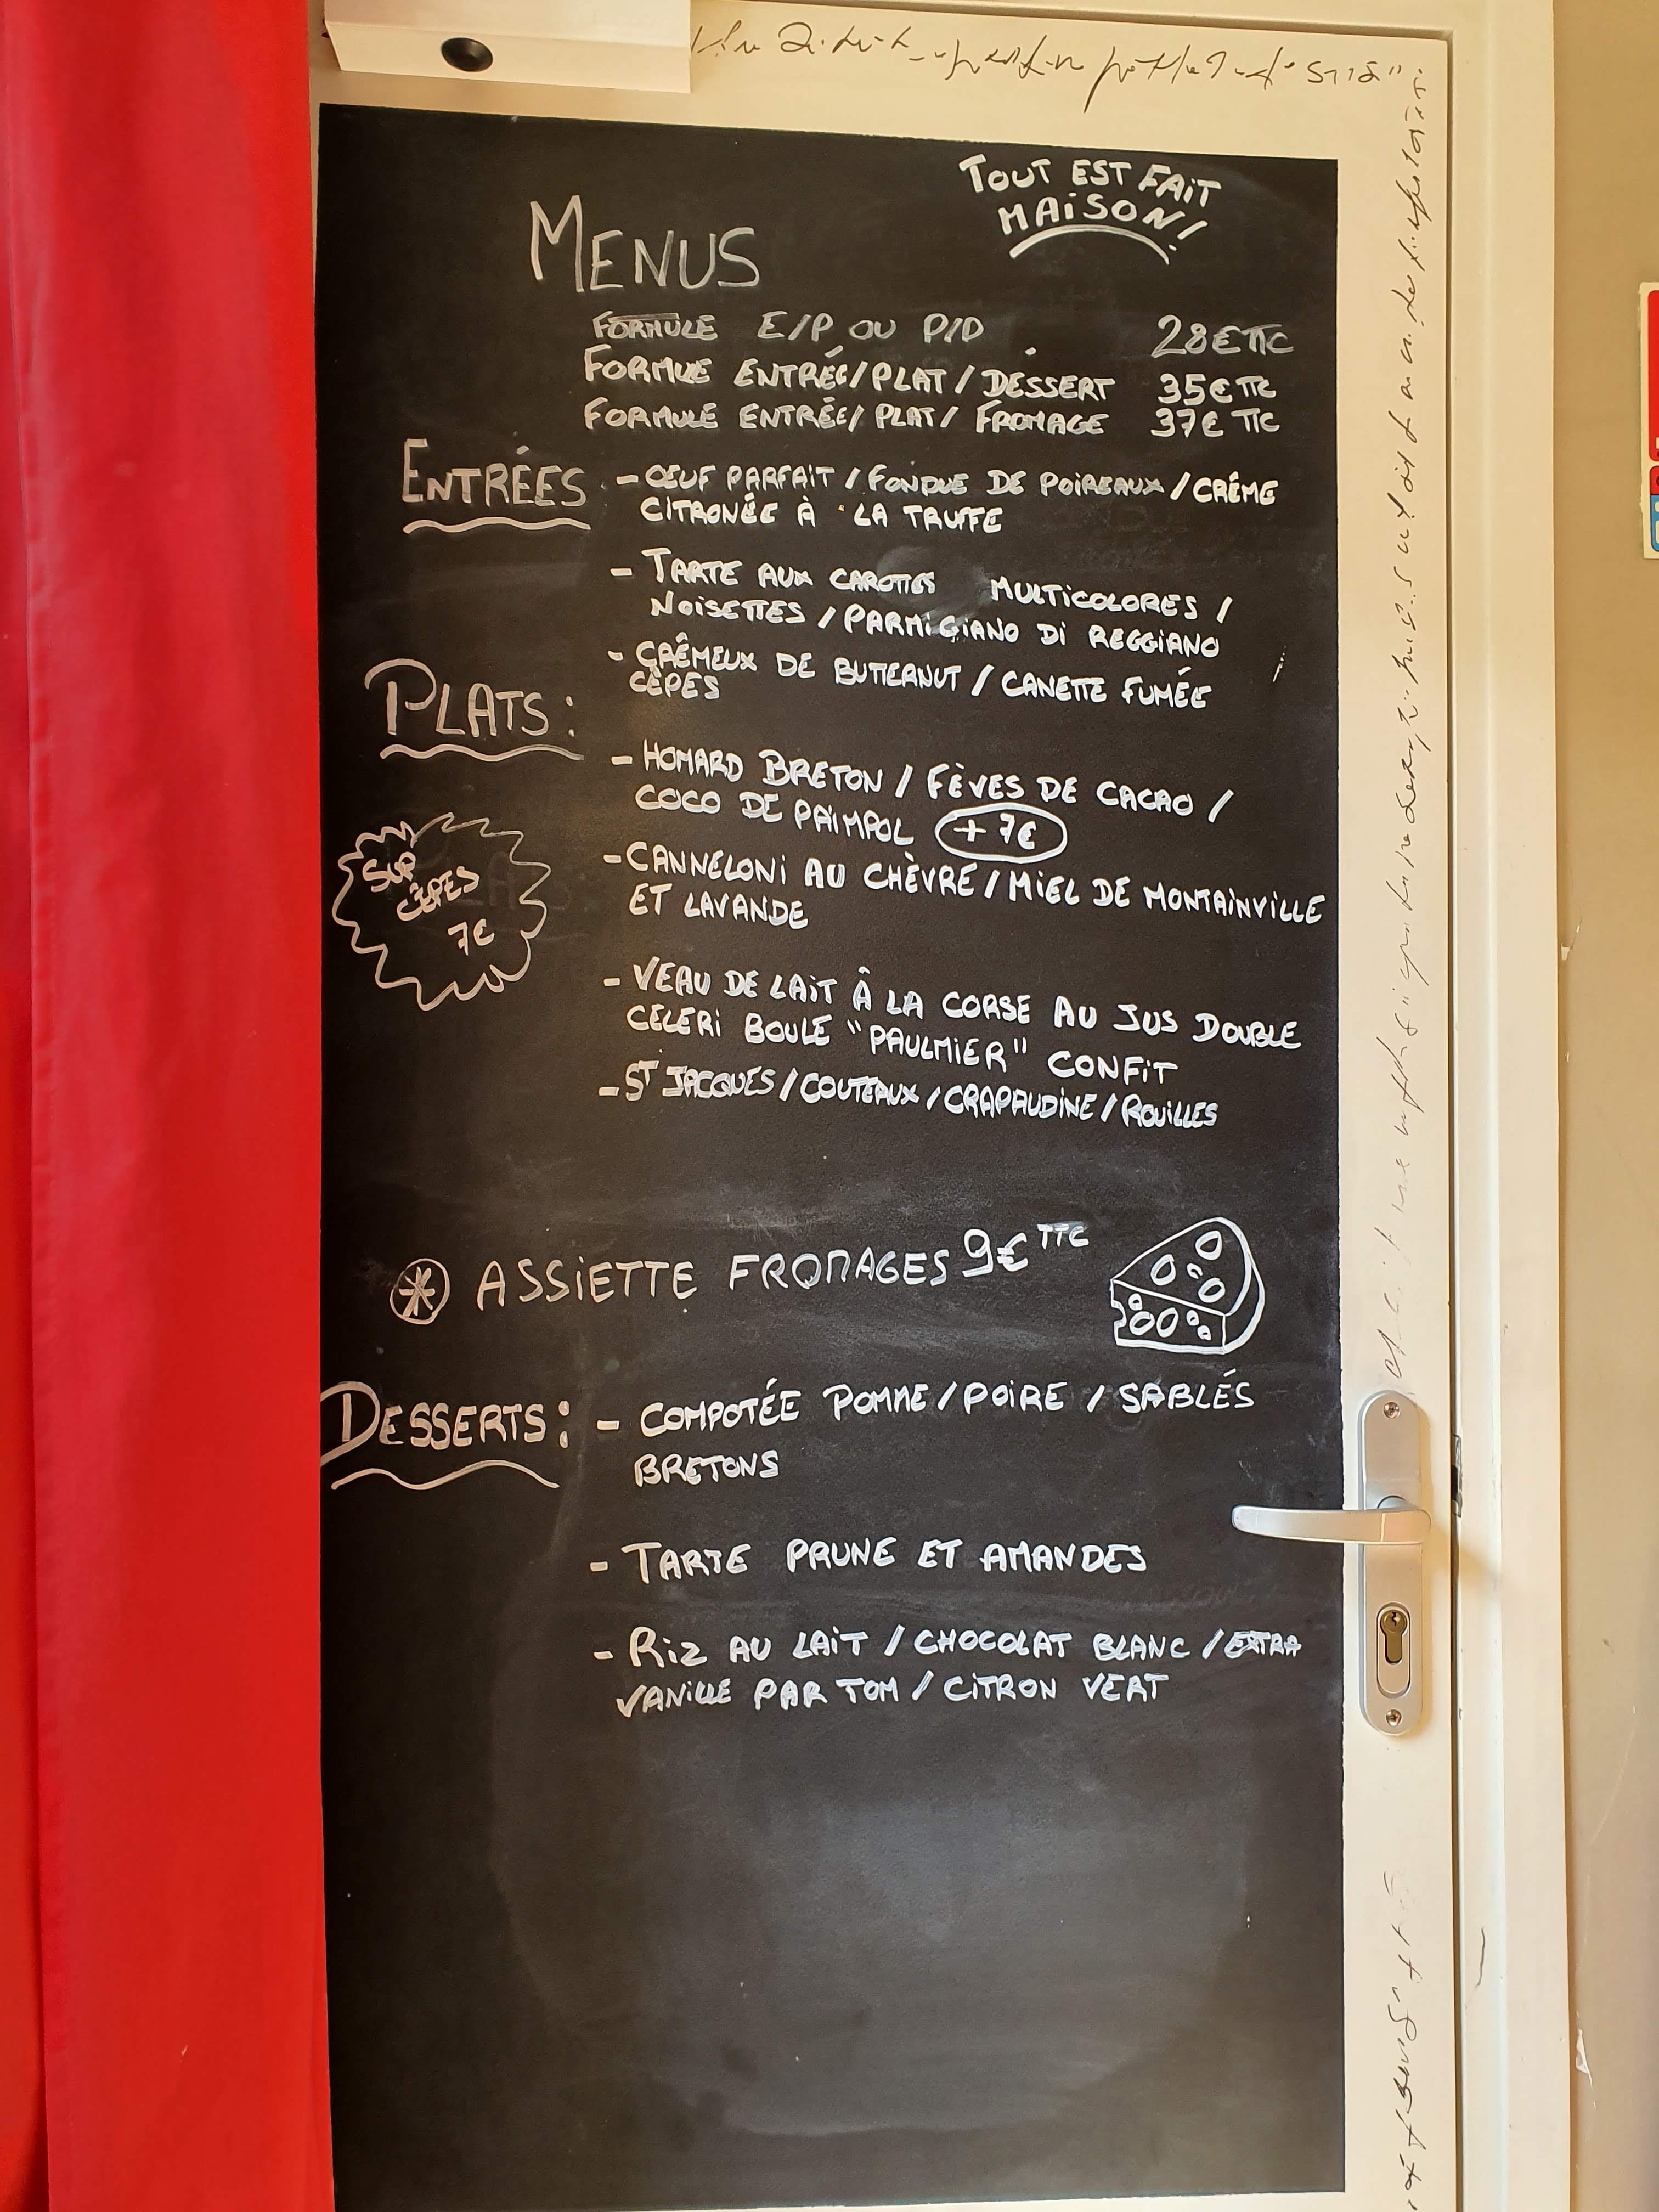 TOUT EST FAIT
MAISON!
MENUS
FORMULE E/P OU P/D 28€ TTC
FORMULE ENTRÉE/PLAT/DESSERT 35€ TTC
FORMULE ENTRÉE/PLAT/FROMAGE 37€ TTC
ENTRÉES - OEUF PARFAIT / FONDUE DE POIREAUX / CRÊME
CITRONÉE À LA TRUFFE
- TARTE AUX CAROTTES MULTICOLORES /
NOISETTES / PARMIGIANO DI REGGIANO
- CRÊMEUX DE BUTTERNUT / CANETTE FUMÉE
CÈPES
PLATS:
- HOMARD BRETON / FÈVES DE CACAO /
COCO DE PAIMPOL +7€
- CANNELONI AU CHÈVRE / MIEL DE MONTAINVILLE
ET LAVANDE
SUP
CÈPES
7€
- VEAU DE LAIT Â LA CORSE AU JUS DOUBLE
CELERI BOULE "PAULMIER" CONFIT
- ST JACQUES / COUTEAUX / CRAPAUDINE / ROUILLES
* ASSIETTE FROMAGES 9€ TTC
DESSERTS: - COMPOTÉE POMME / POIRE / SABLÉS
BRETONS
- TARTE PRUNE ET AMANDES
- RIZ AU LAIT / CHOCOLAT BLANC / EXTRA
VANILLE PAR TOM / CITRON VERT